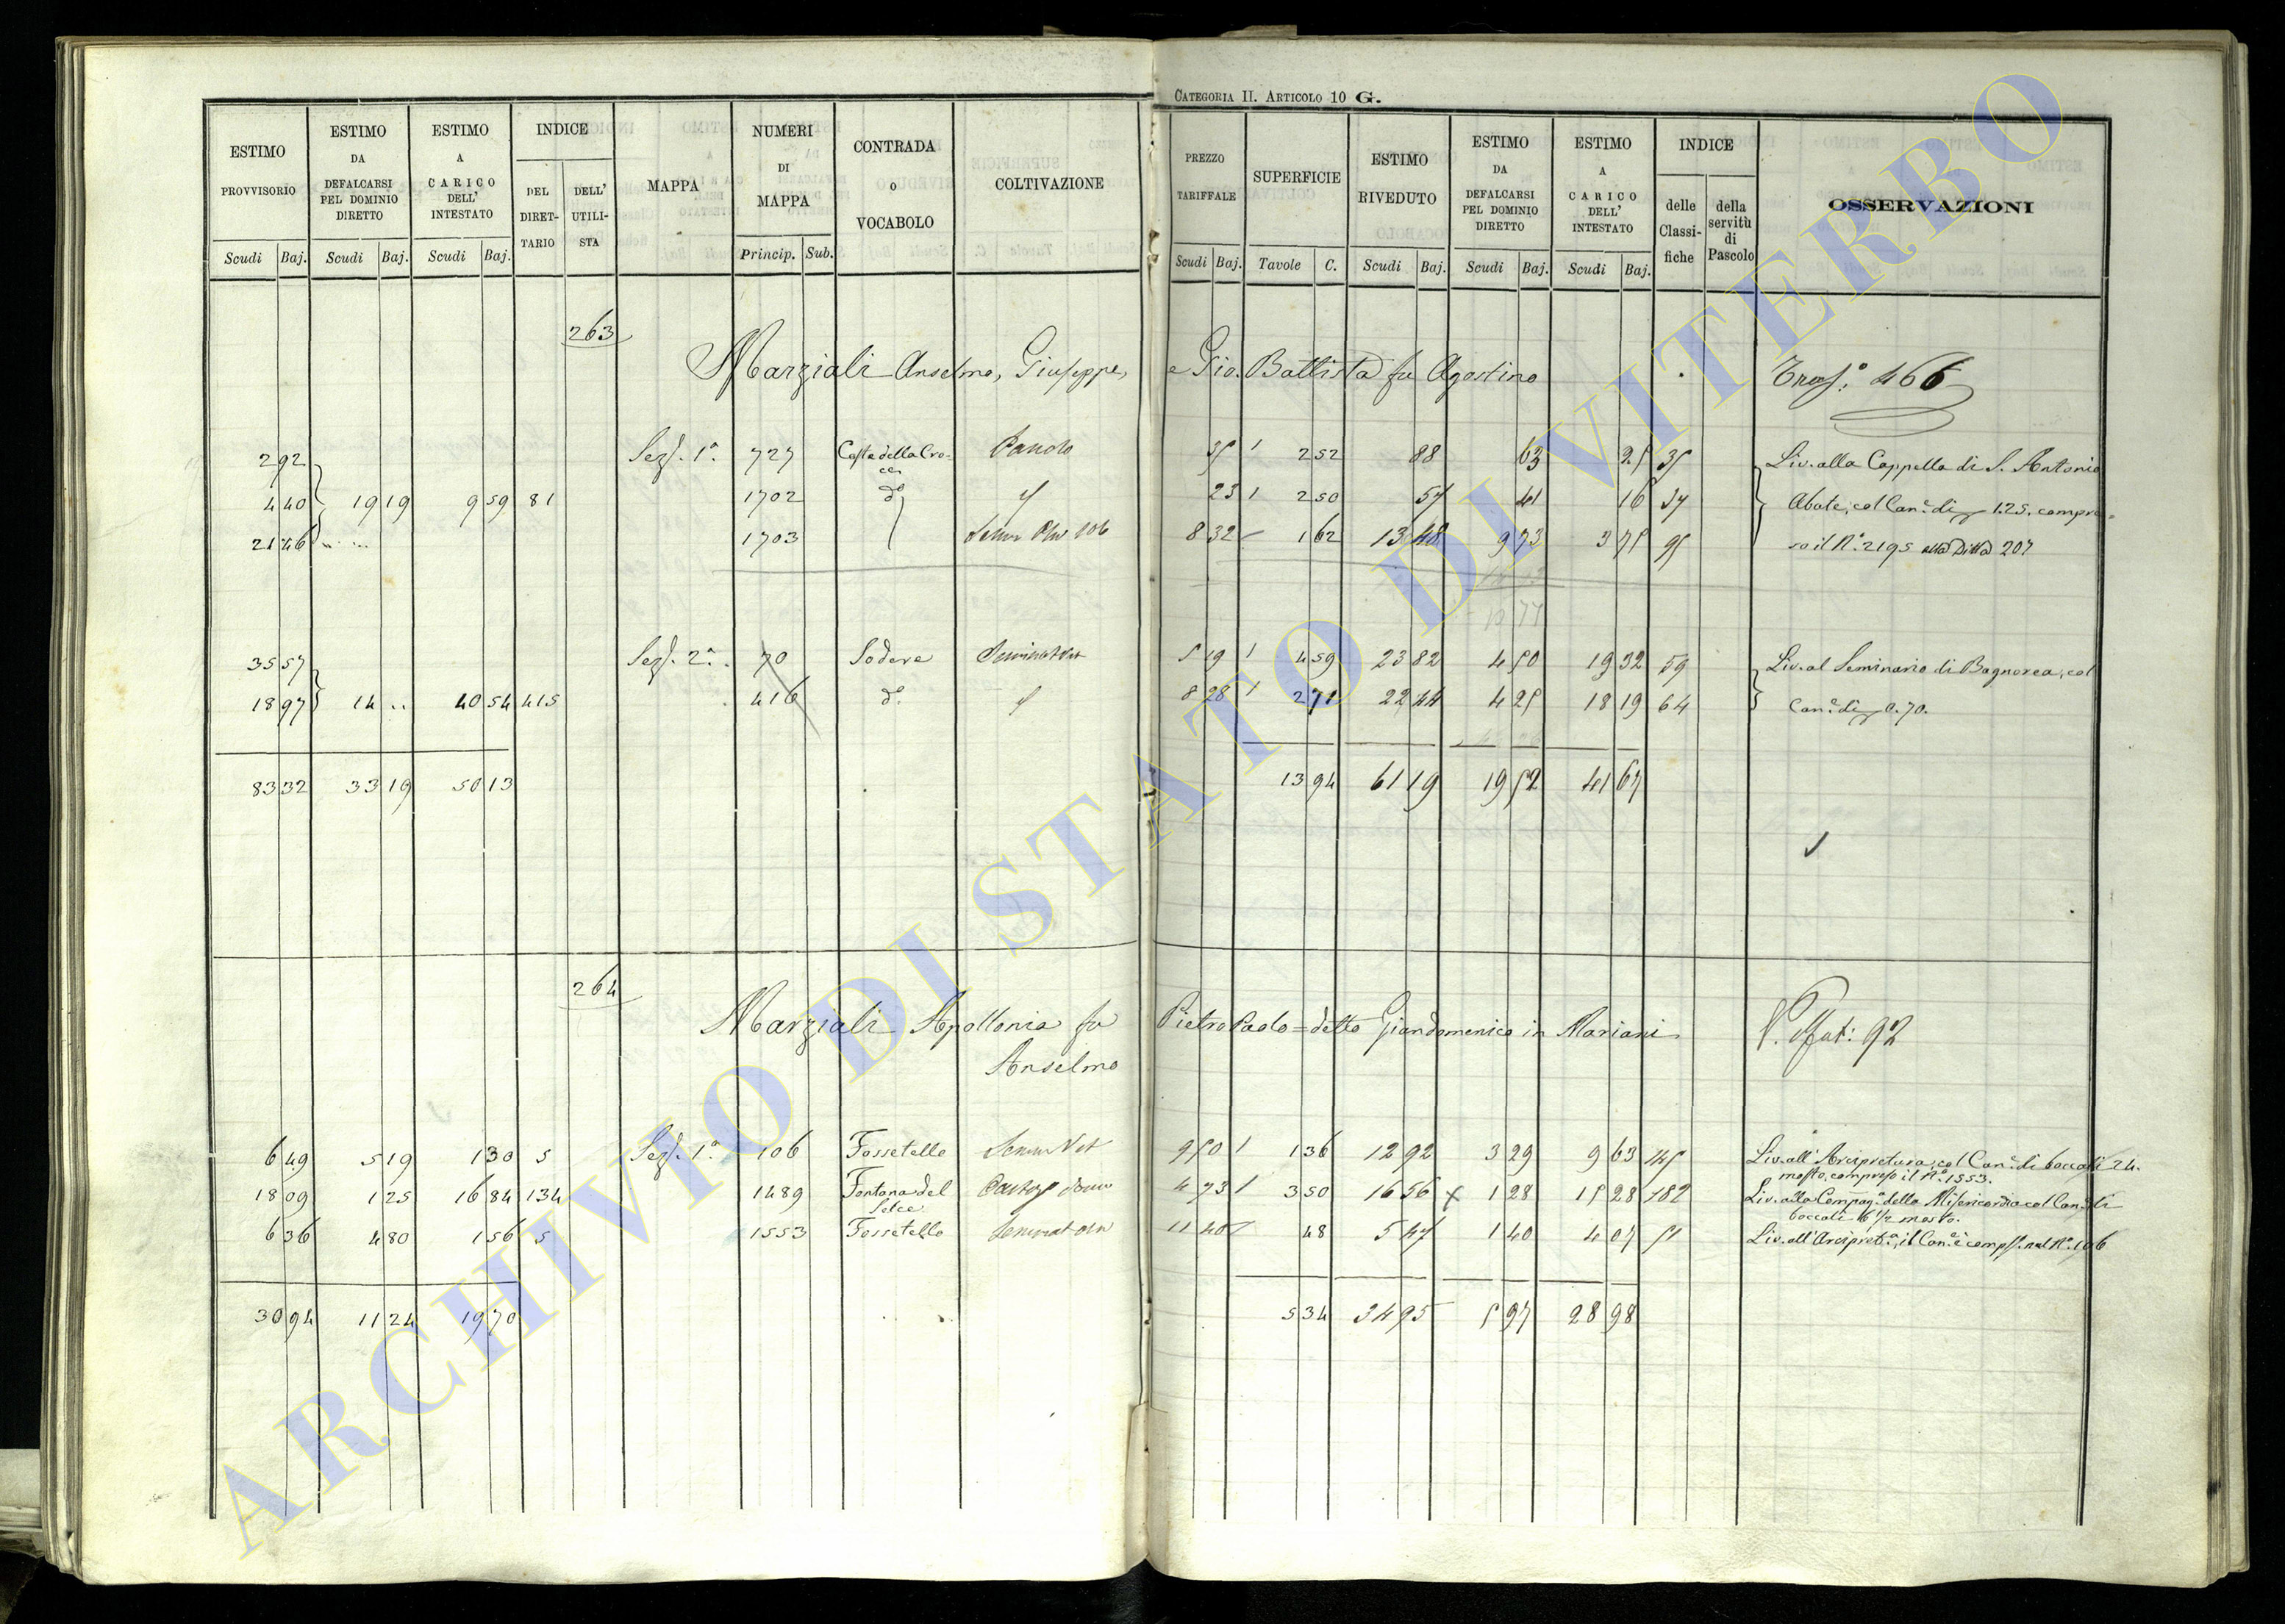 CATEGORIA II. ARTICOLO 10 G.
ESTIMO PROVVISORIO Scudi Baj.
ESTIMO DA DEFALCARSI PEL DOMINIO DIRETTO Scudi Baj.
ESTIMO A CARICO DELL' INTESTATO Scudi Baj.
INDICE DEL DIRETTARIO DELL' UTILISTA
MAPPA
NUMERI DI MAPPA Princip. Sub.
CONTRADA O VOCABOLO
COLTIVAZIONE
PREZZO TARIFFALE Scudi Baj.
SUPERFICIE Tavole C.
ESTIMO RIVEDUTO Scudi Baj.
ESTIMO DA DEFALCARSI PEL DOMINIO DIRETTO Scudi Baj.
ESTIMO A CARICO DELL' INTESTATO Scudi Baj.
INDICE delle Classifiche della servitù di Pascolo
OSSERVAZIONI
263
Marziali Anselmo, Giuseppe, e Gio. Battista fu Agostino Trasf.o 466
2 92 Sez. 1a. 727 Costa della Croce 35 2 52 88 63 25 35 Liv. alla Cappella di S. Antonio
4 40 19 19 9 59 81 1702 do 23 2 50 57 41 16 37 Abate, col Can.e di 1.25. compre-
21 46 1703 8 32 1 62 13 48 9 73 3 75 95 so il No. 2195 alla Ditta 207
35 57 Sez. 2a. 70 Sodere 5 19 4 59 23 82 4 50 19 32 59 Liv. al Seminario di Bagnorea, col
18 97 14 .. 40 54 415 416 do. 8 28 2 71 22 44 4 25 18 19 64 Can.e di 0.70.
83 32 33 19 50 13 13 94 61 19 19 52 41 67
264
Marziali Apollonia fu Pietro Paolo = detto Giandomenico in Mariani 92
Anselmo
6 49 5 19 1 30 5 Sez. 1a. 106 Fossetello 9 50 1 36 12 92 3 29 9 63 45 Liv. all' Arcipretura, col Can.e di boccali 24.
mosto, compreso il No. 1553.
18 09 1 25 16 84 134 1489 Fontana del Selce 4 73 3 50 16 56 1 28 15 28 182 Liv. alla Compag.a della Misericordia col Can.e di
boccali 6 1/2 mosto.
6 36 4 80 1 56 5 1553 Fossetello 11 40 48 5 47 1 40 4 07 51 Liv. all' Arcipret.a, il Can.e è comp. nel No. 106
30 94 11 24 19 70 5 34 34 95 5 97 28 98
ARCHIVIO DI STATO DI VITERBO